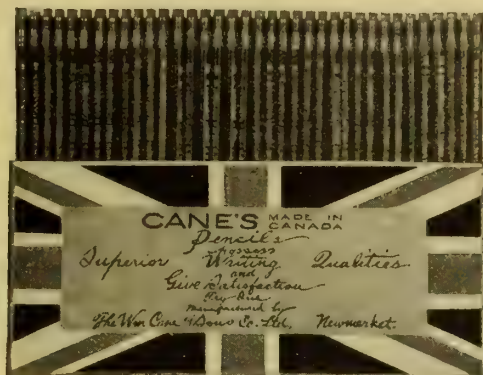 CANE'S MADE IN CANADA
Pencils
possess
Superior Writing Qualities
and
Give Satisfaction
Try One
Manufactured by
The Wm Cane & Sons Co. Ltd. Newmarket.